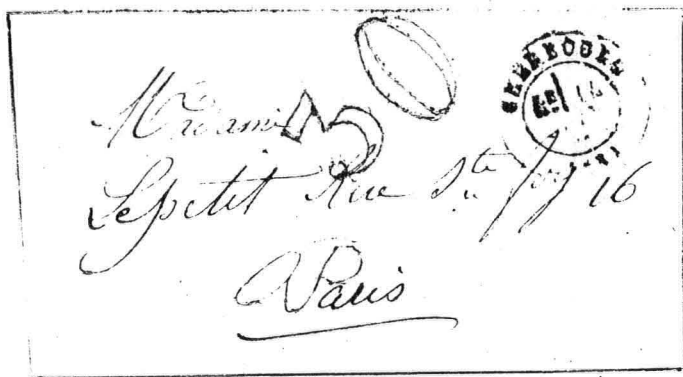 CHERBOURG
Madame
Lepetit Rue Ste Foy 16
A Paris